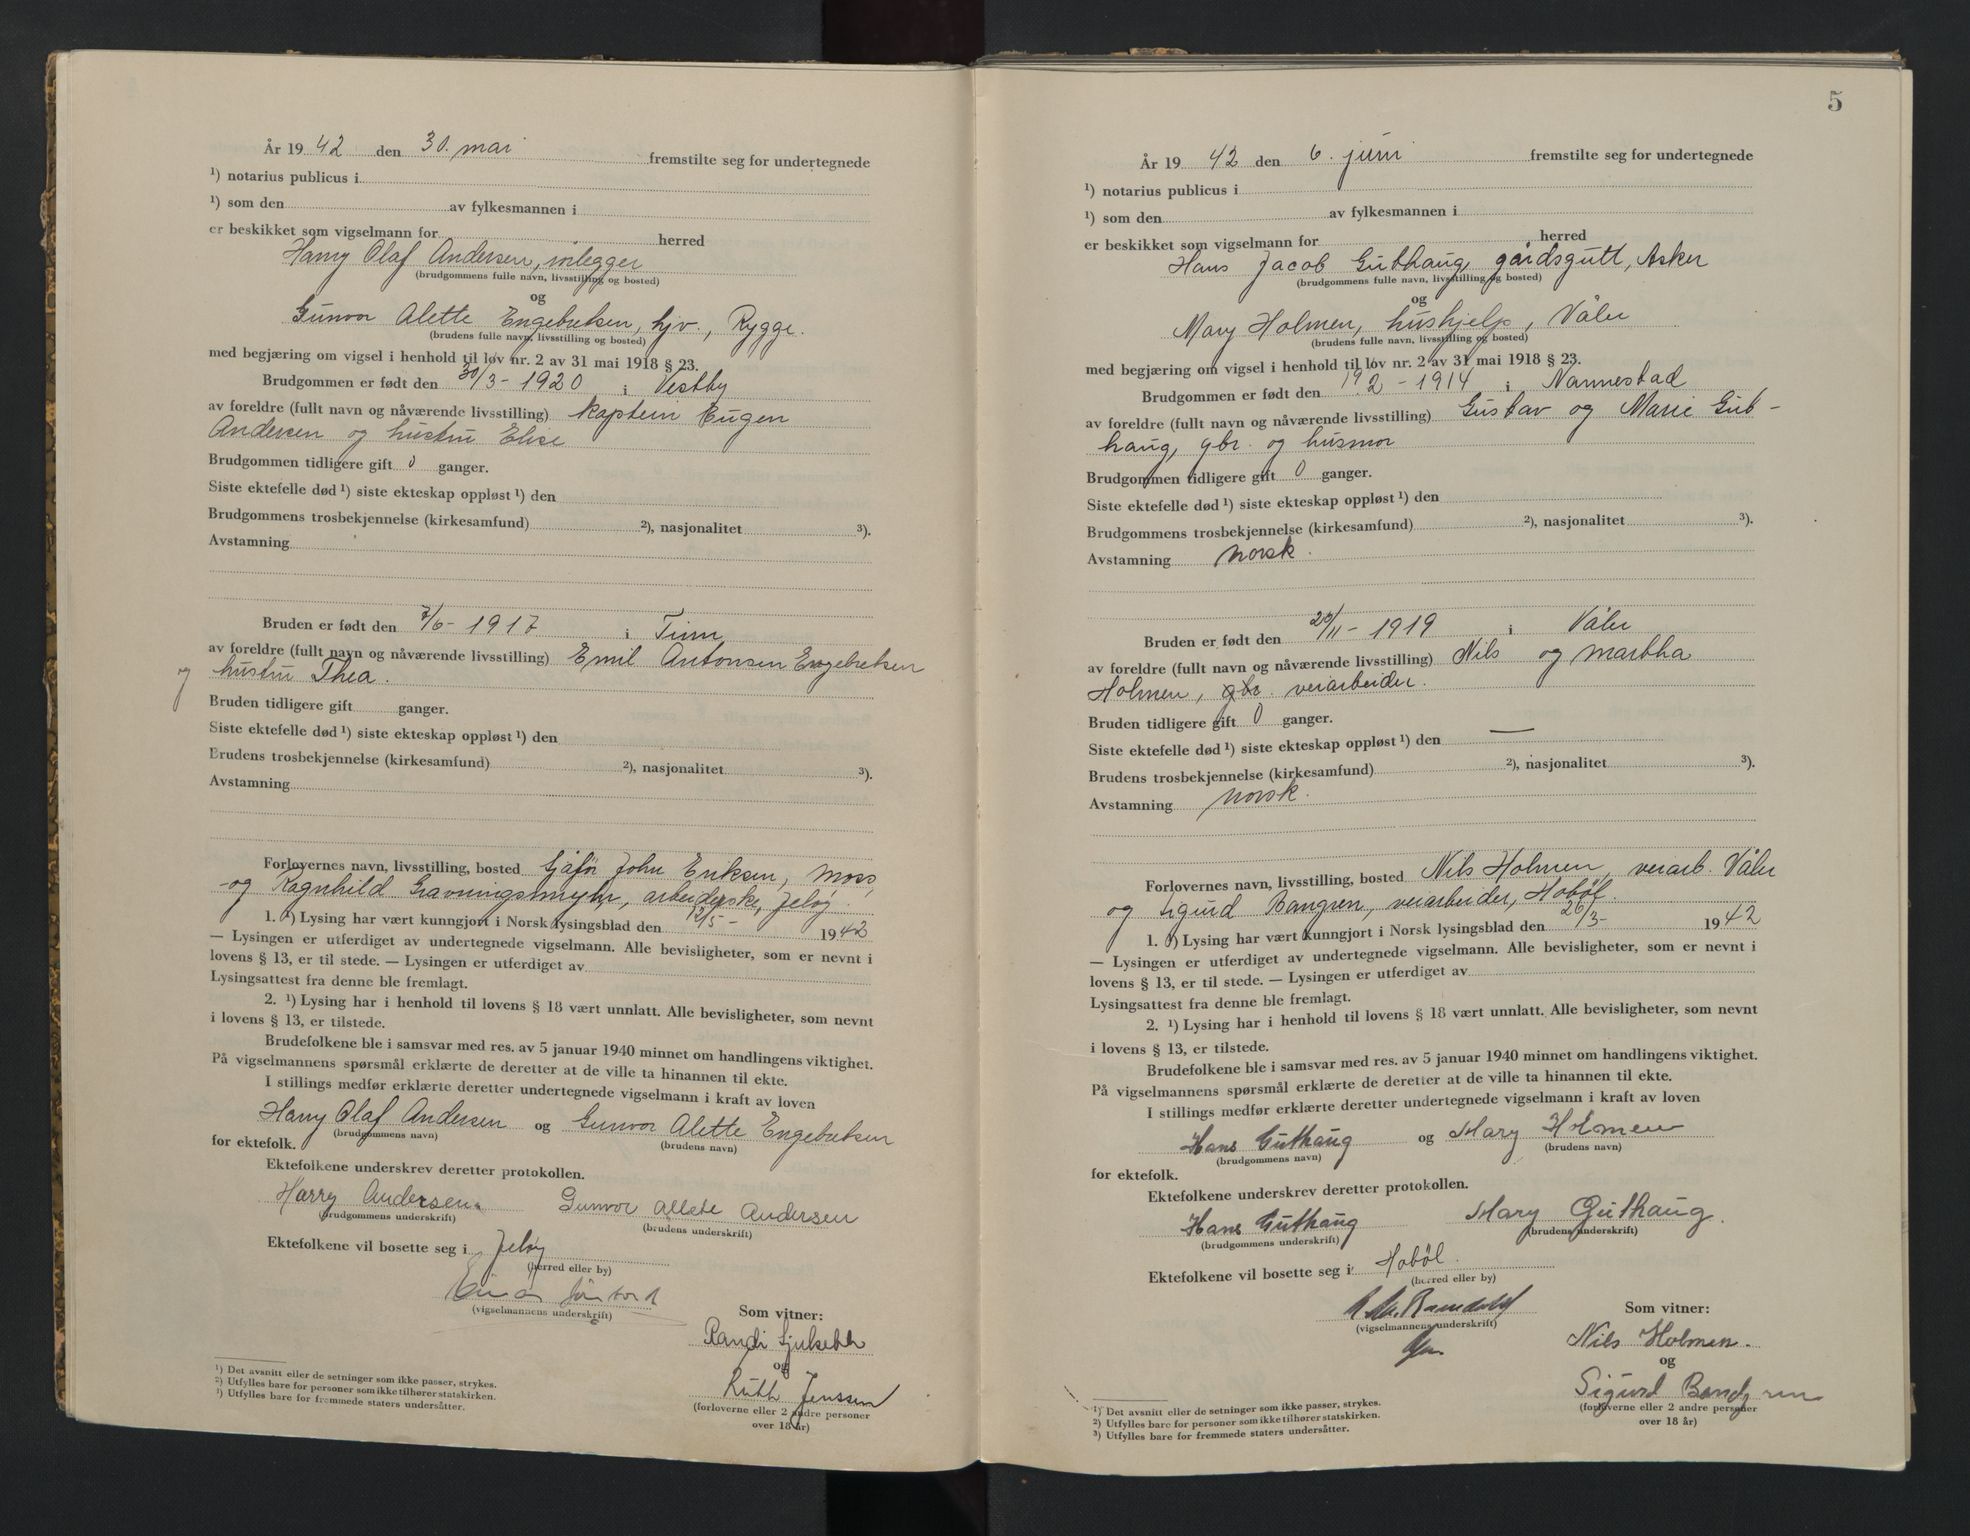 År 1942 den 30. mai fremstilte seg for undertegnede
¹) notarius publicus i
¹) som den av fylkesmannen i
er beskikket som vigselmann for herred
Harry Olaf Andersen,
(brudgommens fulle navn, livsstilling og bosted)
og
Gunvor Alette Engebretsen, hjv., Rygge.
(brudens fulle navn, livsstilling og bosted)
med begjæring om vigsel i henhold til løv nr. 2 av 31 mai 1918 § 23.
Brudgommen er født den 30/3 - 1920 i Vestby
av foreldre (fullt navn og nåværende livsstilling) kaptein Eugen
Andersen og hustru Elise
Brudgommen tidligere gift 0 ganger.
Siste ektefelle død ¹) siste ekteskap oppløst ¹) den
Brudgommens trosbekjennelse (kirkesamfund) ²), nasjonalitet ³).
Avstamning
Bruden er født den 7/6 - 1917 i
av foreldre (fullt navn og nåværende livsstilling) Emil Antonsen Engebretsen
og hustru Thea.
Bruden tidligere gift ganger.
Siste ektefelle død ¹) siste ekteskap oppløst ¹) den
Brudens trosbekjennelse (kirkesamfund) ²), nasjonalitet ³).
Avstamning
Forlovernes navn, livsstilling, bosted Sjåfør John Eriksen, Moss,
og Ragnhild Gravningsmyhr, arbeiderske, Jeløy.
1. ¹) Lysing har vært kunngjort i Norsk lysingsblad den 12/5 - 1942
— Lysingen er utferdiget av undertegnede vigselmann. Alle bevisligheter, som er nevnt i
lovens § 13, er til stede. — Lysingen er utferdiget av
Lysingsattest fra denne ble fremlagt.
2. ¹) Lysing har i henhold til lovens § 18 vært unnlatt. Alle bevisligheter, som nevnt
i lovens § 13, er tilstede.
Brudefolkene ble i samsvar med res. av 5 januar 1940 minnet om handlingens viktighet.
På vigselmannens spørsmål erklærte de deretter at de ville ta hinannen til ekte.
I stillings medfør erklærte deretter undertegnede vigselmann i kraft av loven
Harry Olaf Andersen og Gunvor Alette Engebretsen
(brudgommens navn) (brudens navn)
for ektefolk.
Ektefolkene underskrev deretter protokollen.
Harry Andersen. Gunvor Allete Andersen
(brudgommens underskrift) (brudens underskrift)
Ektefolkene vil bosette seg i Jeløy
(herred eller by)
(vigselmannens underskrift)
Som vitner:
Randi
og
Ruth Jenssen
(forloverne eller 2 andre personer
over 18 år)
¹) Det avsnitt eller de setninger som ikke passer, strykes.
²) Utfylles bare for personer som ikke tilhører statskirken.
³) Utfylles bare for fremmede staters undersåtter.
5
År 1942 den 6. juni fremstilte seg for undertegnede
¹) notarius publicus i
¹) som den av fylkesmannen i
er beskikket som vigselmann for herred
Hans Jacob Guthaug, gårdsgutt, Asker
(brudgommens fulle navn, livsstilling og bosted)
og
Mary Holmen, hushjelp, Våler
(brudens fulle navn, livsstilling og bosted)
med begjæring om vigsel i henhold til løv nr. 2 av 31 mai 1918 § 23.
Brudgommen er født den 19/2 - 1914 i Nannestad
av foreldre (fullt navn og nåværende livsstilling) Gustav og Marie Gut-
haug, gbr. og husmor
Brudgommen tidligere gift 0 ganger.
Siste ektefelle død ¹) siste ekteskap oppløst ¹) den
Brudgommens trosbekjennelse (kirkesamfund) ²), nasjonalitet ³).
Avstamning norsk.
Bruden er født den 20/11 - 1919 i Våler
av foreldre (fullt navn og nåværende livsstilling) Nils og Martha
Holmen, gbr. veiarbeider.
Bruden tidligere gift 0 ganger.
Siste ektefelle død ¹) siste ekteskap oppløst ¹) den —
Brudens trosbekjennelse (kirkesamfund) ²), nasjonalitet ³).
Avstamning norsk.
Forlovernes navn, livsstilling, bosted Nils Holmen, veiarb. Våler
og Sigurd Bangren, veiarbeider, Hobøl.
1. ¹) Lysing har vært kunngjort i Norsk lysingsblad den 26/3 - 1942
— Lysingen er utferdiget av undertegnede vigselmann. Alle bevisligheter, som er nevnt i
lovens § 13, er til stede. — Lysingen er utferdiget av
Lysingsattest fra denne ble fremlagt.
2. ¹) Lysing har i henhold til lovens § 18 vært unnlatt. Alle bevisligheter, som nevnt
i lovens § 13, er tilstede.
Brudefolkene ble i samsvar med res. av 5 januar 1940 minnet om handlingens viktighet.
På vigselmannens spørsmål erklærte de deretter at de ville ta hinannen til ekte.
I stillings medfør erklærte deretter undertegnede vigselmann i kraft av loven
Hans Guthaug og Mary Holmen
(brudgommens navn) (brudens navn)
for ektefolk.
Ektefolkene underskrev deretter protokollen.
Hans Guthaug Mary Guthaug.
(brudgommens underskrift) (brudens underskrift)
Ektefolkene vil bosette seg i Hobøl.
(herred eller by)
(vigselmannens underskrift)
Som vitner:
Nils Holmen.
og
Sigurd
(forloverne eller 2 andre personer
over 18 år)
¹) Det avsnitt eller de setninger som ikke passer, strykes.
²) Utfylles bare for personer som ikke tilhører statskirken.
³) Utfylles bare for fremmede staters undersåtter.